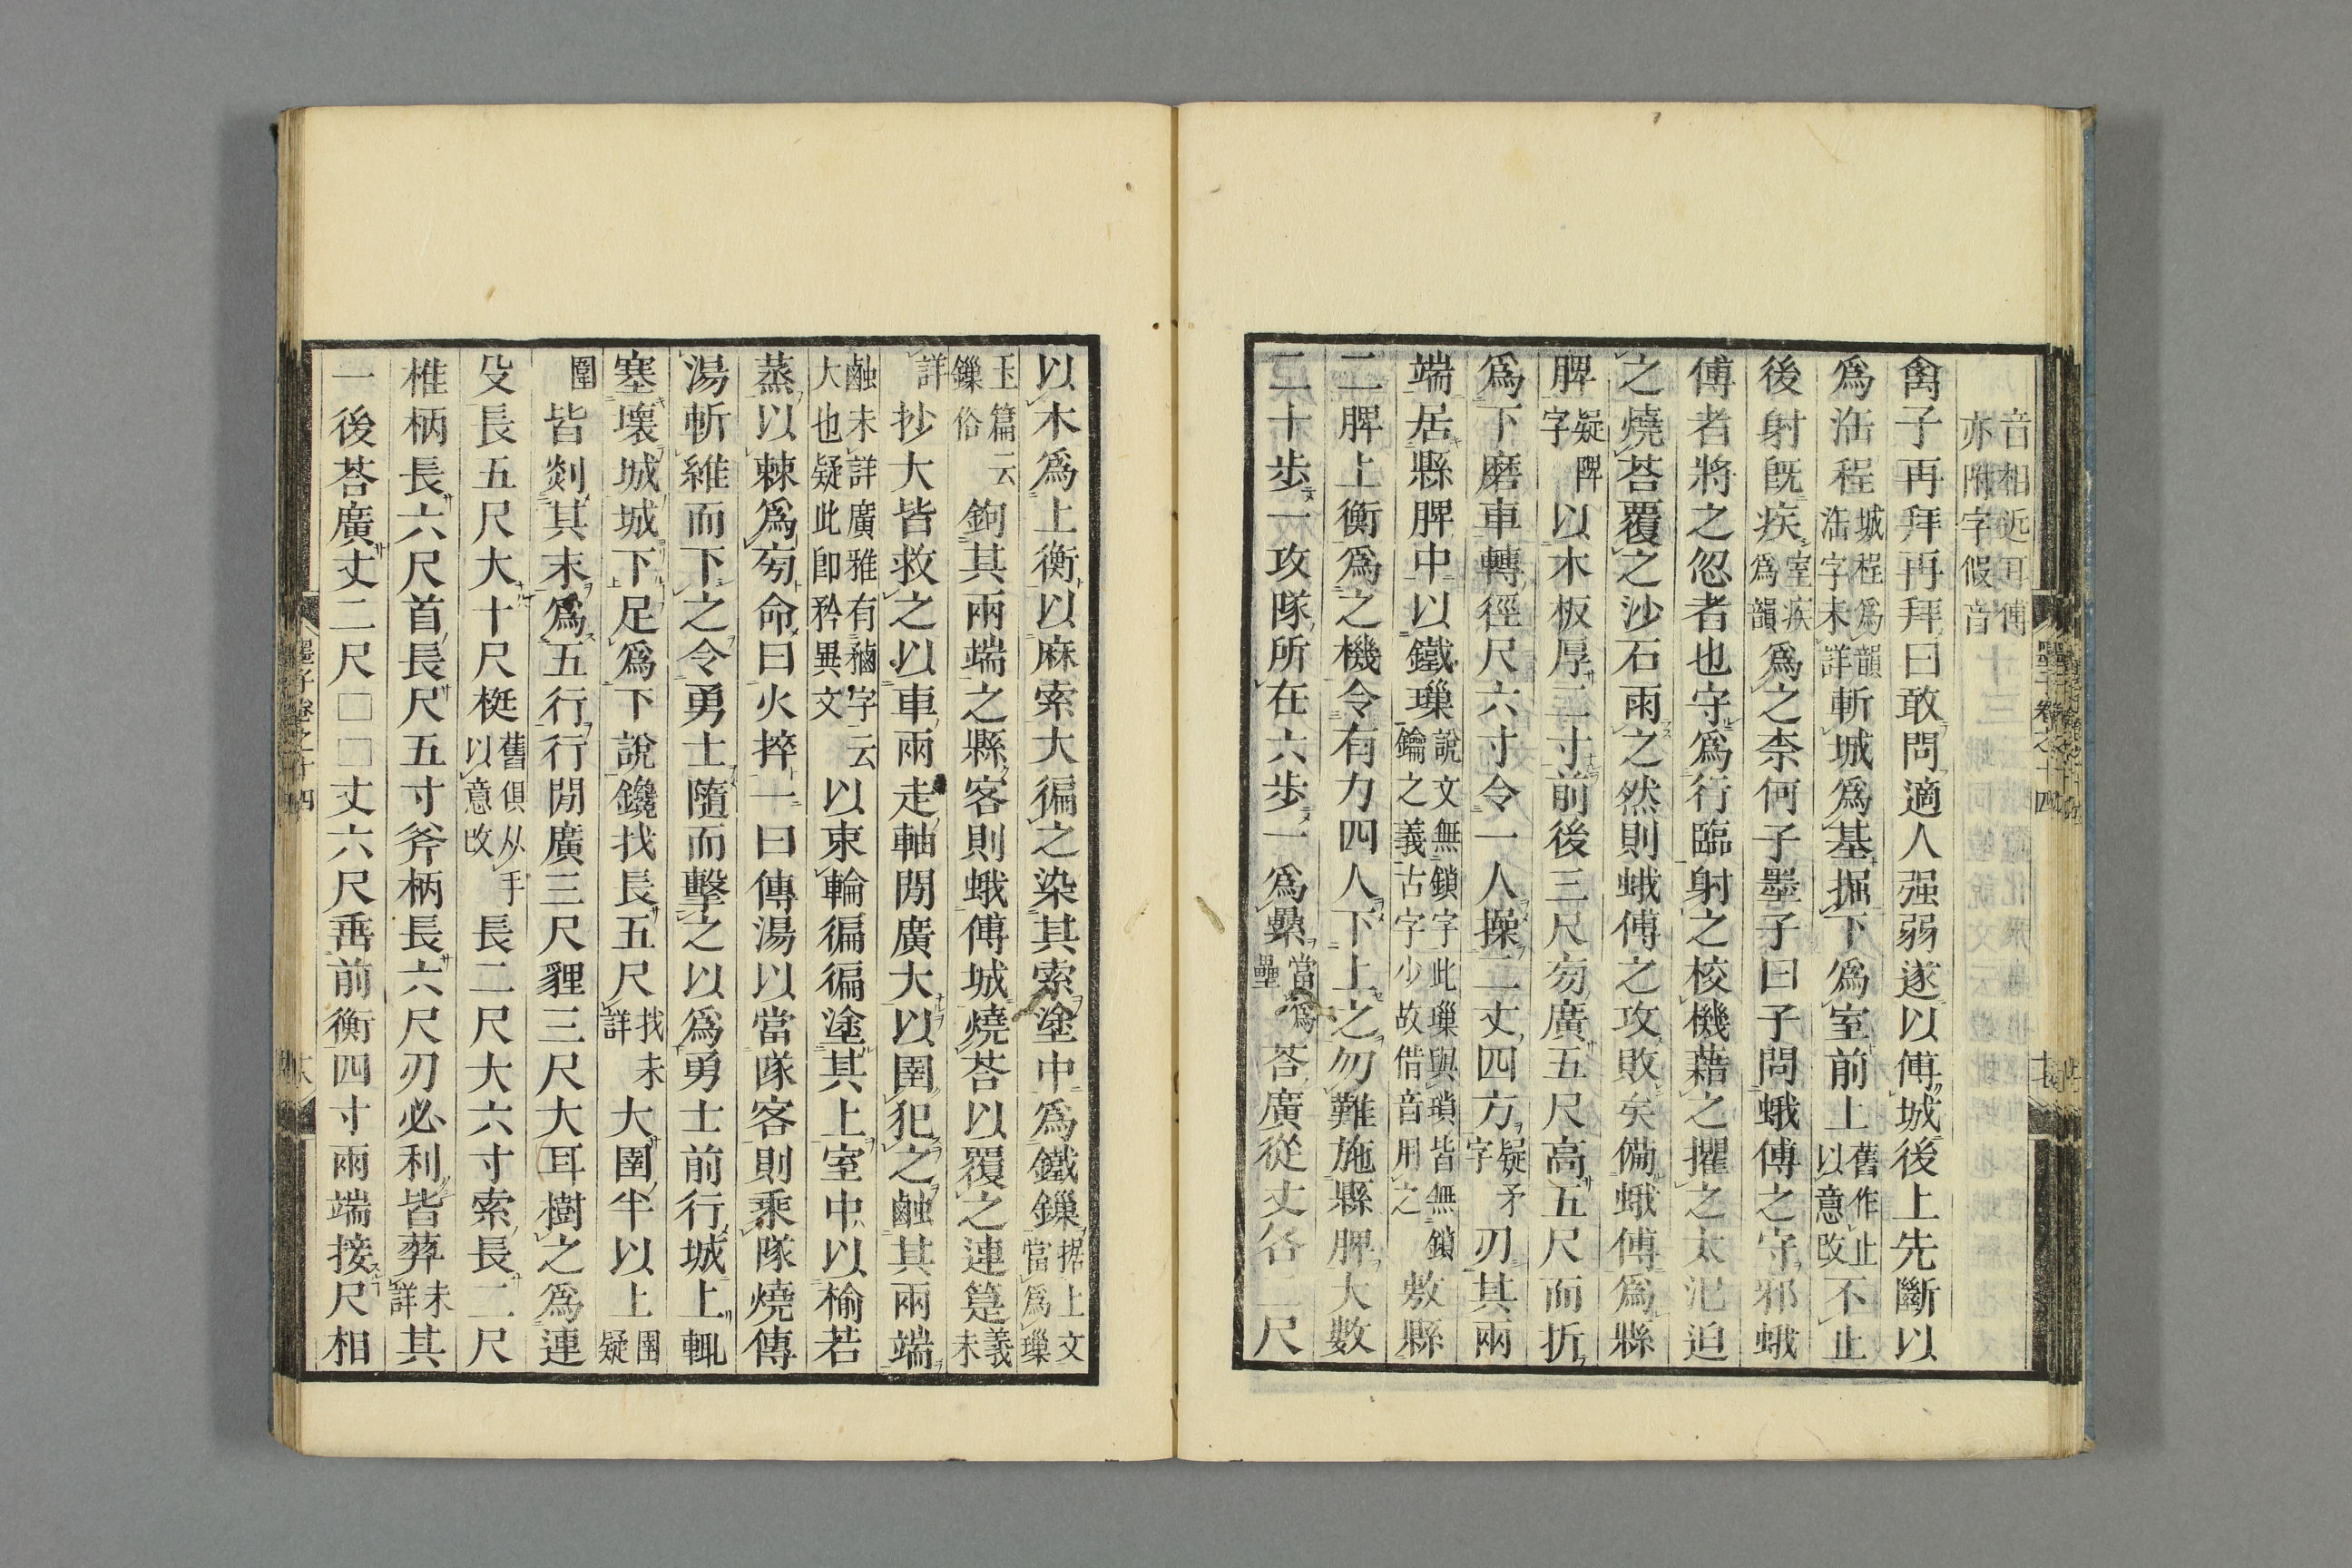 音相近耳傅
亦附字假音
禽子再拜再拜曰敢問適人强弱遂以傅城後上先斷以
爲浩程城程爲韻浩字未詳斬城爲基掘下爲室前上舊作止以意改不止
後射旣疾室疾爲韻爲之柰何子墨子曰子問蛾傅之守邪蛾
傅者將之忽者也守爲行臨射之校機藉之擢之太氾迫
之燒荅覆之沙石雨之然則蛾傅之攻敗矣備蛾傅爲縣
脾疑陴字以木板厚二寸前後三尺旁廣五尺高五尺而折
爲下磨車轉徑尺六寸令一人操二丈四方疑矛字刃其兩
端居縣脾中以鐵璅說文無鎖字此璅與瑣皆無鎖鑰之義古字少故借音用之敷縣
二脾上衡爲之機令有力四人下上之勿難施縣脾大數
二十步一攻隊所在六步一爲纍當爲壘荅廣從丈各二尺
墨子卷之十四
以木爲上衡以麻索大徧之染其索塗中爲鐵鏁据上文當爲璅
玉篇云鏁俗鉤其兩端之縣客則蛾傅城燒荅以覆之連筳義未
詳抄大皆救之以車兩走軸閒廣大以圍犯之䖒其兩端
䖒未詳廣雅有䅵字云大也疑此卽矜異文以束輪徧徧塗其上室中以榆若
蒸以棘爲旁命曰火捽一曰傳湯以當隊客則乘隊燒傳
湯斬維而下之令勇士隨而擊之以爲勇士前行城上輒
塞壞城城下足爲下說鑱杙長五尺找未詳大圍半以上圍疑
圉皆剡其末爲五行行閒廣三尺貍三尺大耳樹之爲連
殳長五尺大十尺梃舊俱从手以意改長二尺大六寸索長二尺
椎柄長六尺首長尺五寸斧柄長六尺刃必利皆葬未詳其
一後荅廣丈二尺□□丈六尺垂前衡四寸兩端接尺相
墨子卷之十四
十八